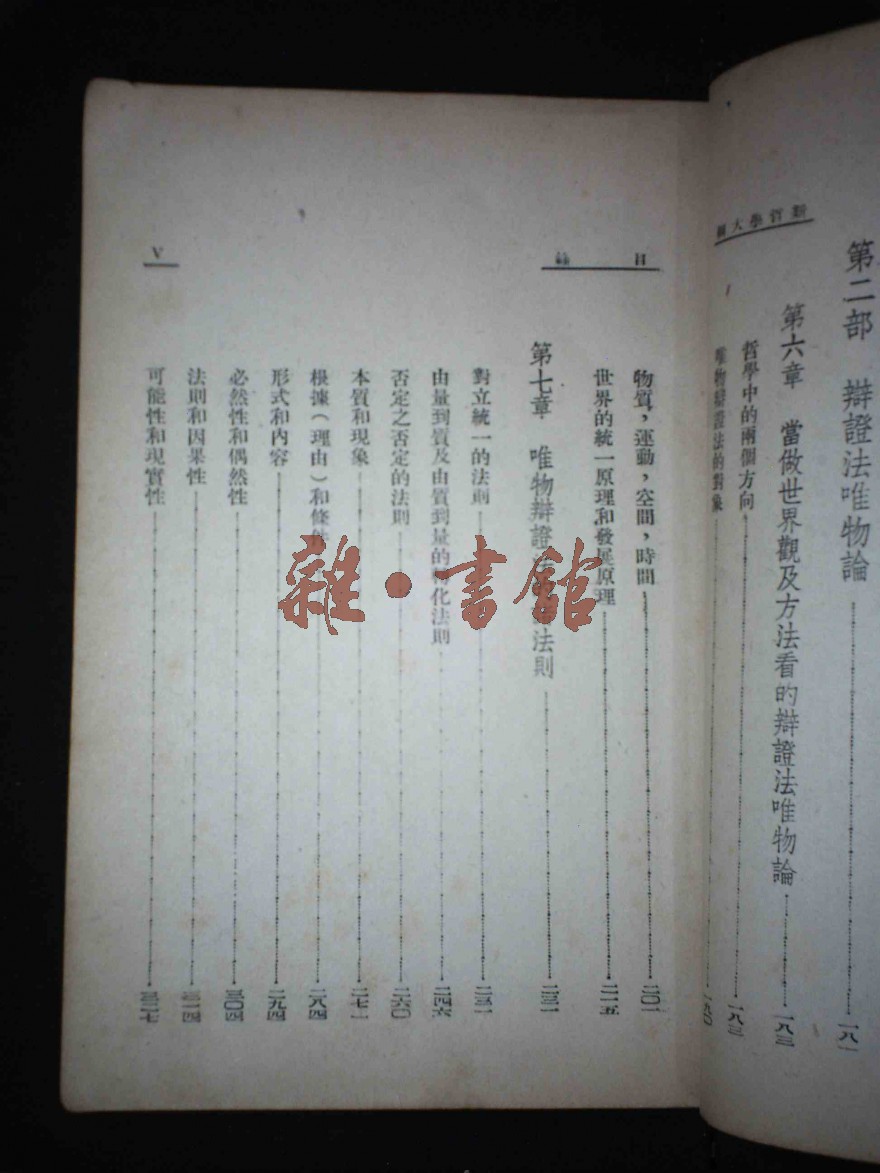 新哲學大綱
第二部　辯證法唯物論……一八一
第六章　當做世界觀及方法看的辯證法唯物論……一八三
哲學中的兩個方向……一八三
唯物辯證法的對象……一九〇
目錄
V
物質，運動，空間，時間……二〇一
世界的統一原理和發展原理……二一五
第七章　唯物辯證法的諸法則……二三一
對立統一的法則……二三一
由量到質及由質到量的轉化法則……二四六
否定之否定的法則……二六〇
本質和現象……二七一
根據（理由）和條件……二八四
形式和內容……二九四
必然性和偶然性……三〇四
法則和因果性……三一四
可能性和現實性……三二七
雜·書館